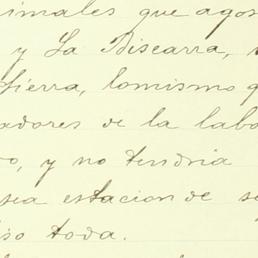 imales que agos
y La Biscarra,
sierra, lomismo q
adores de la labo
o, y no tendria
sea estacion de se
iso toda.